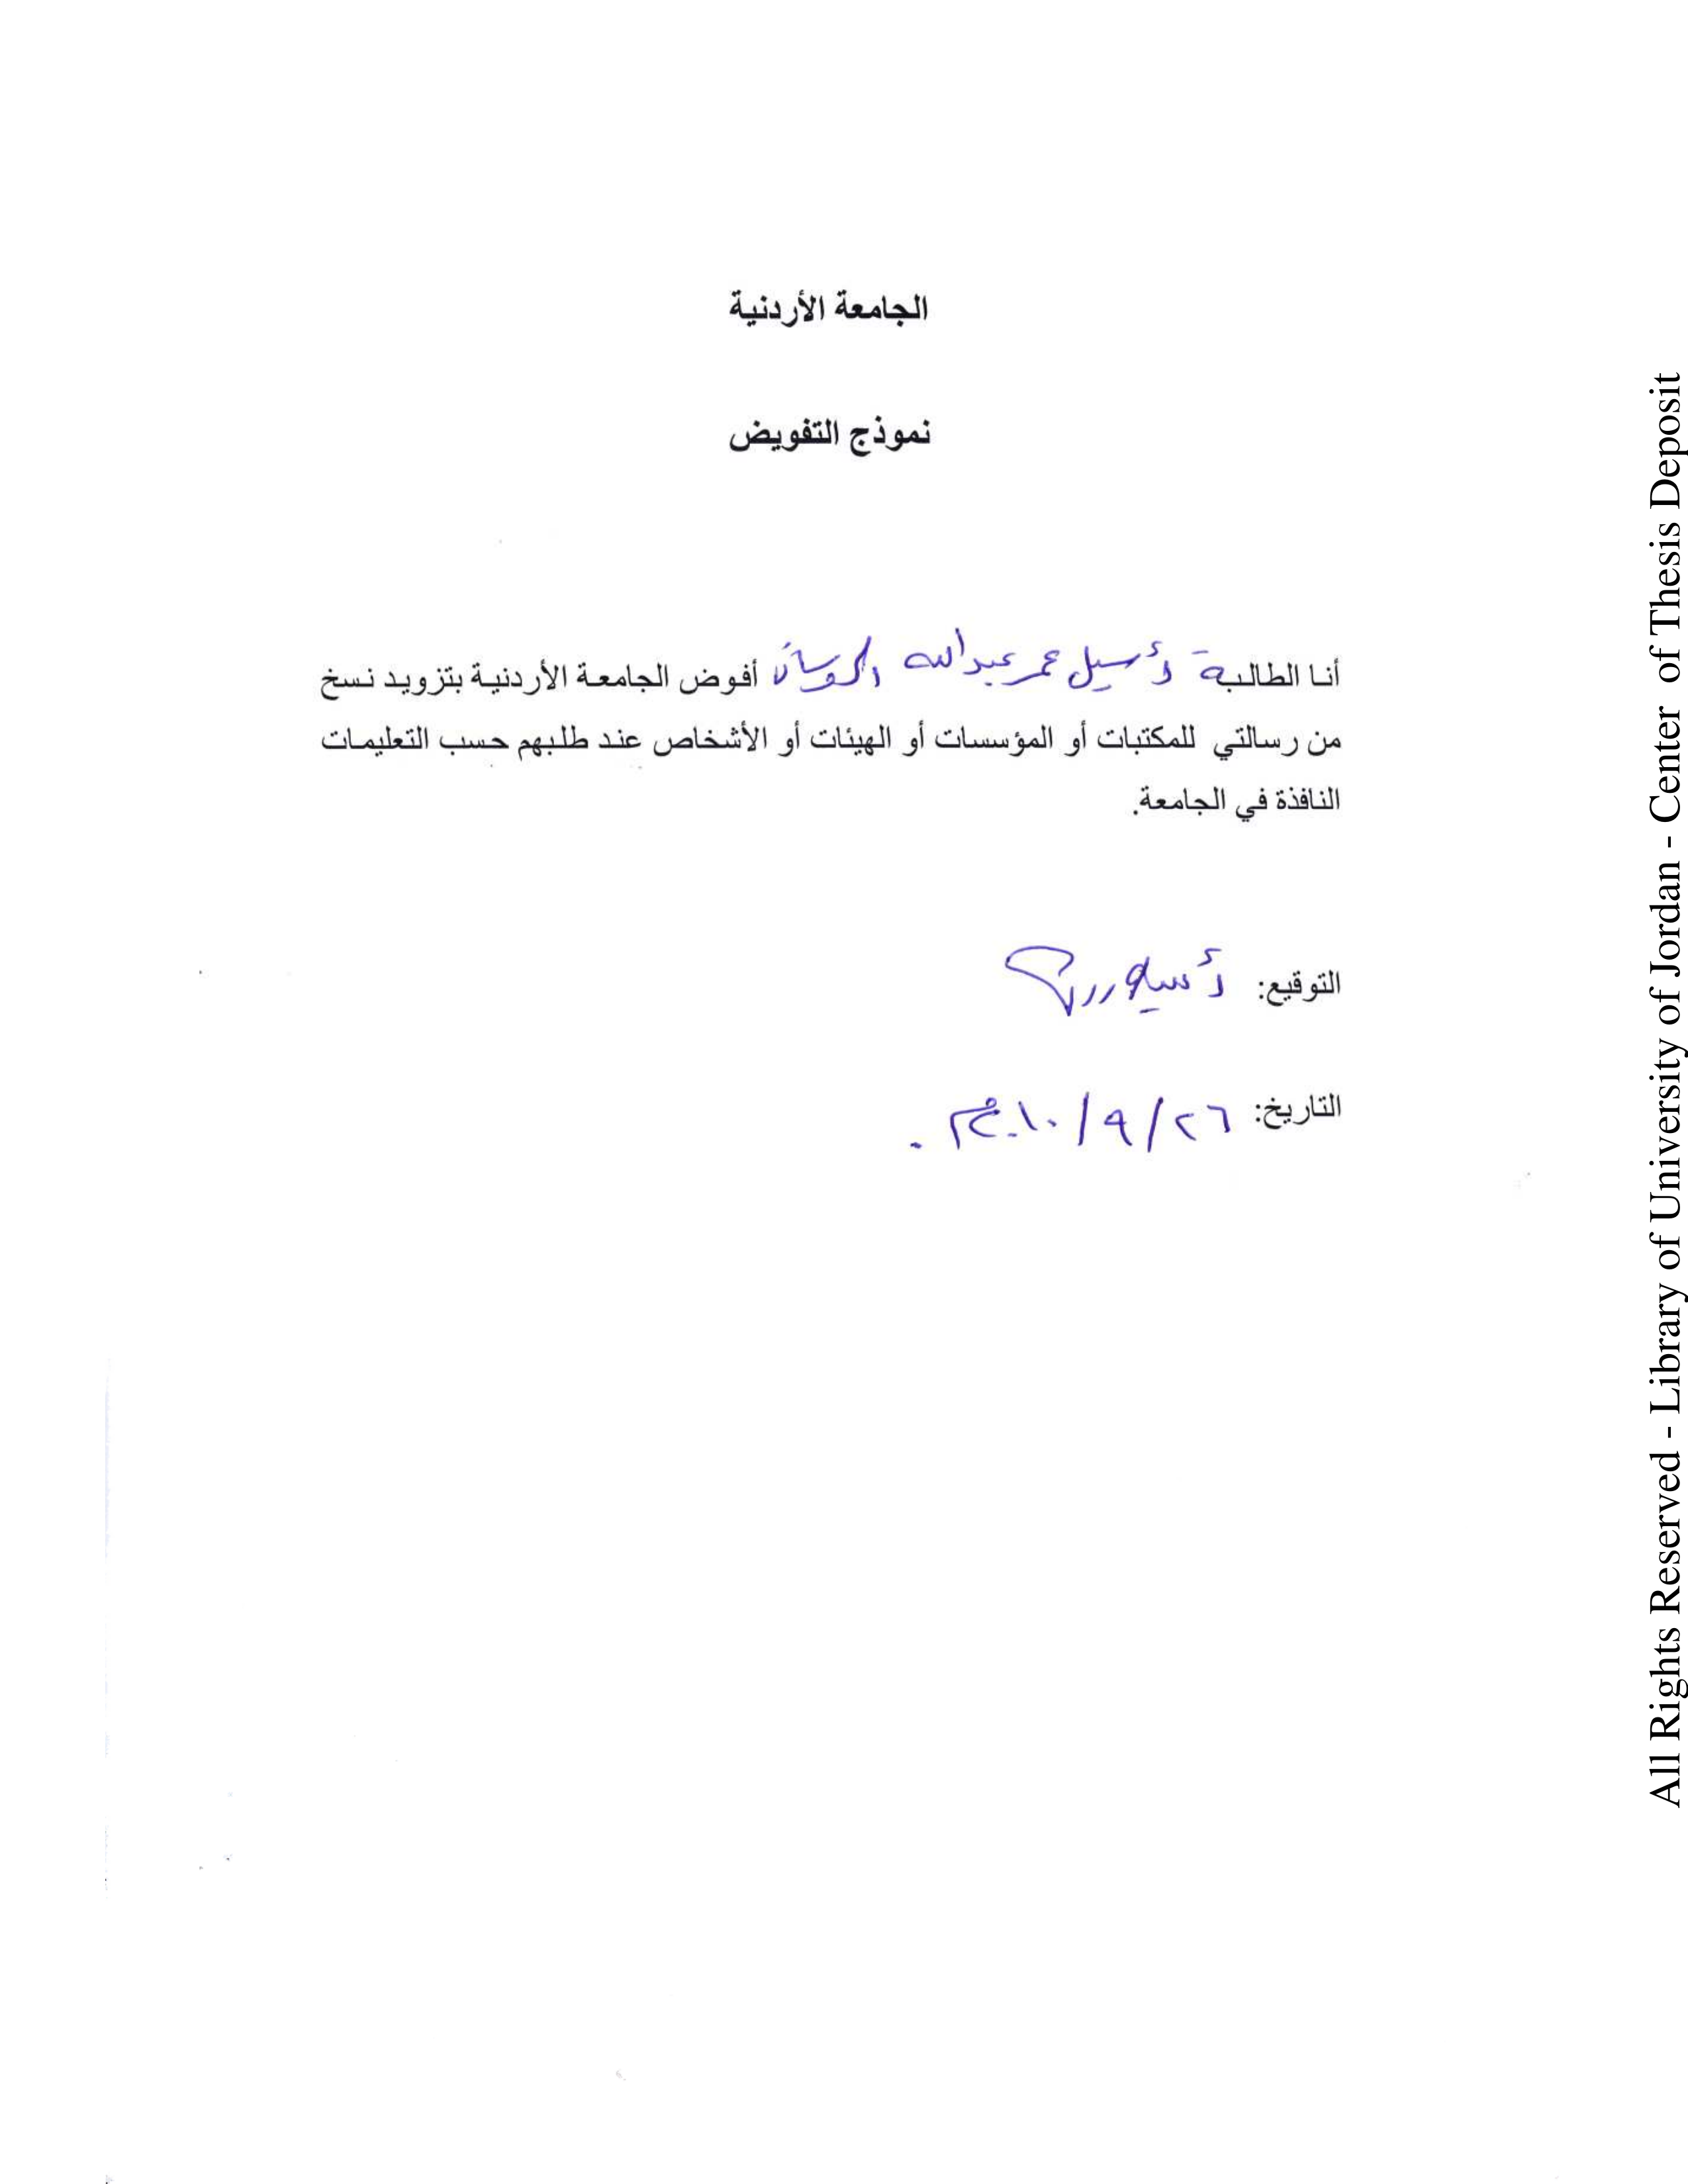 الجامعة الأردنية
نموذج التفويض
أنا الطالبة أسيل عمر عبدالله الروسان أفوض الجامعة الأردنية بتزويد نسخ
من رسالتي للمكتبات أو المؤسسات أو الهيئات أو الأشخاص عند طلبهم حسب التعليمات
النافذة في الجامعة.
التوقيع:
التاريخ: ٢٦/٩/
All Rights Reserved - Library of University of Jordan - Center of Thesis Deposit